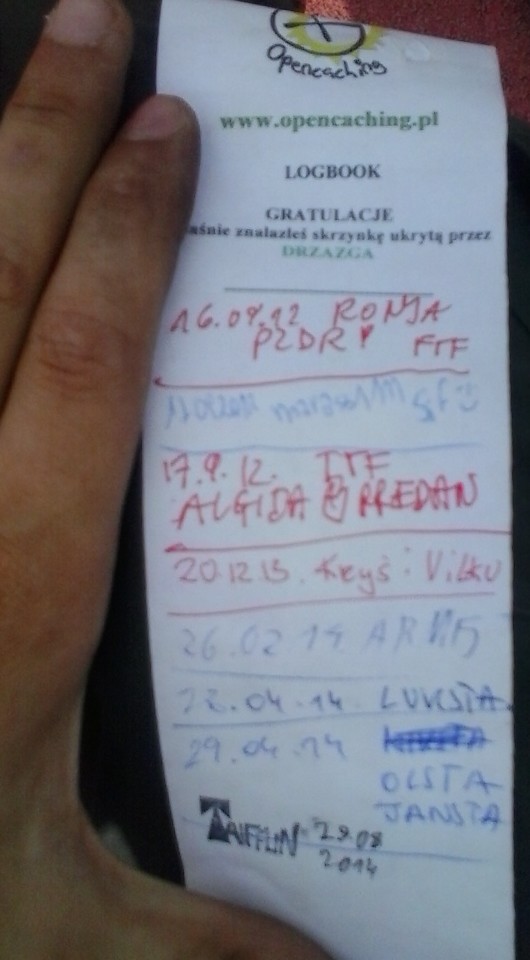 Opencaching
www.opencaching.pl
LOGBOOK
GRATULACJE
aśnie znalazłeś skrzynkę ukrytą przez
DRZAZGA
16.09.12 RONJA
PZDR! FTF
17.9.12. TTF
ALGIDA PREDAN
20.12.13. Krzyś i Vilku
26.02 14
28.04.14 LUKSTA
29.04.14
OLSTA
JANSTA
TAIFFUN 29.08
2014